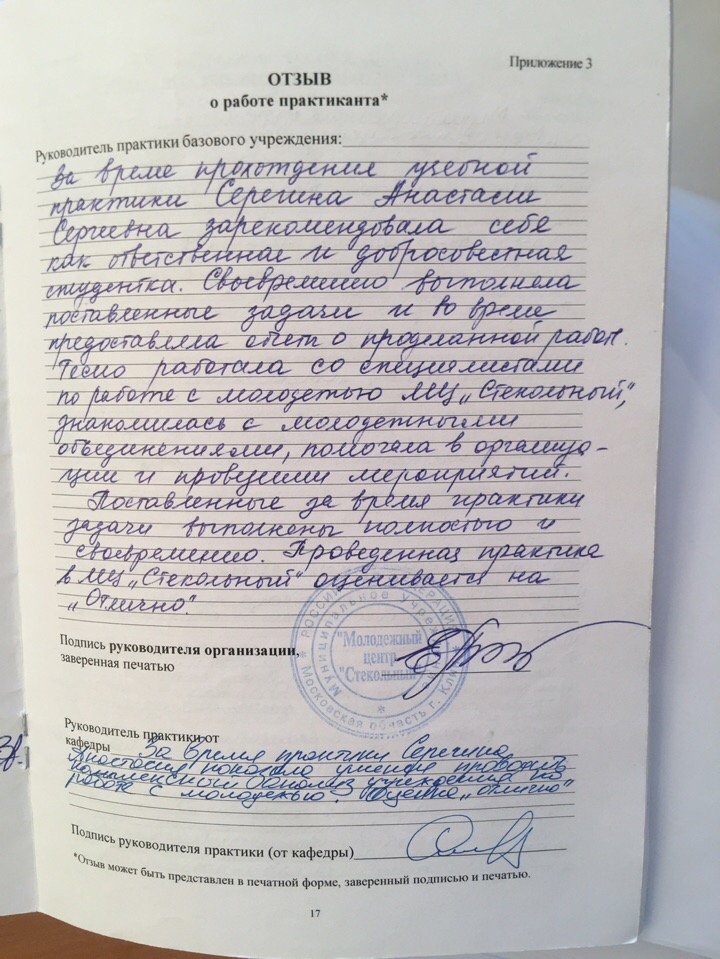 Приложение 3
ОТЗЫВ
о работе практиканта*
Руководитель практики базового учреждения:
За время прохождения учебной
практики Серегина Анастасия
Сергеевна зарекомендовала себя
как ответственная и добросовестная
студентка. Своевременно выполняла
поставленные задачи и во время
предоставляла отчет о проделанной работе.
Тесно работала со специалистами
по работе с молодежью МЦ „Стекольный",
знакомилась с молодежными
объединениями, помогала в организа-
ции и проведении мероприятий.
Поставленные за время практики
задачи выполнены полностью и
своевременно. Проведенная практика
в МЦ „Стекольный" оценивается на
„Отлично".
Подпись руководителя организации,
заверенная печатью
"Молодежный
центр
"Стекольный"
Московская область г. Клин
Руководитель практики от
кафедры За время практики Серегина
Анастасия показала умения проводить
работе с молодежью. Оценка „отлично"
Подпись руководителя практики (от кафедры)
*Отзыв может быть представлен в печатной форме, заверенный подписью и печатью.
17